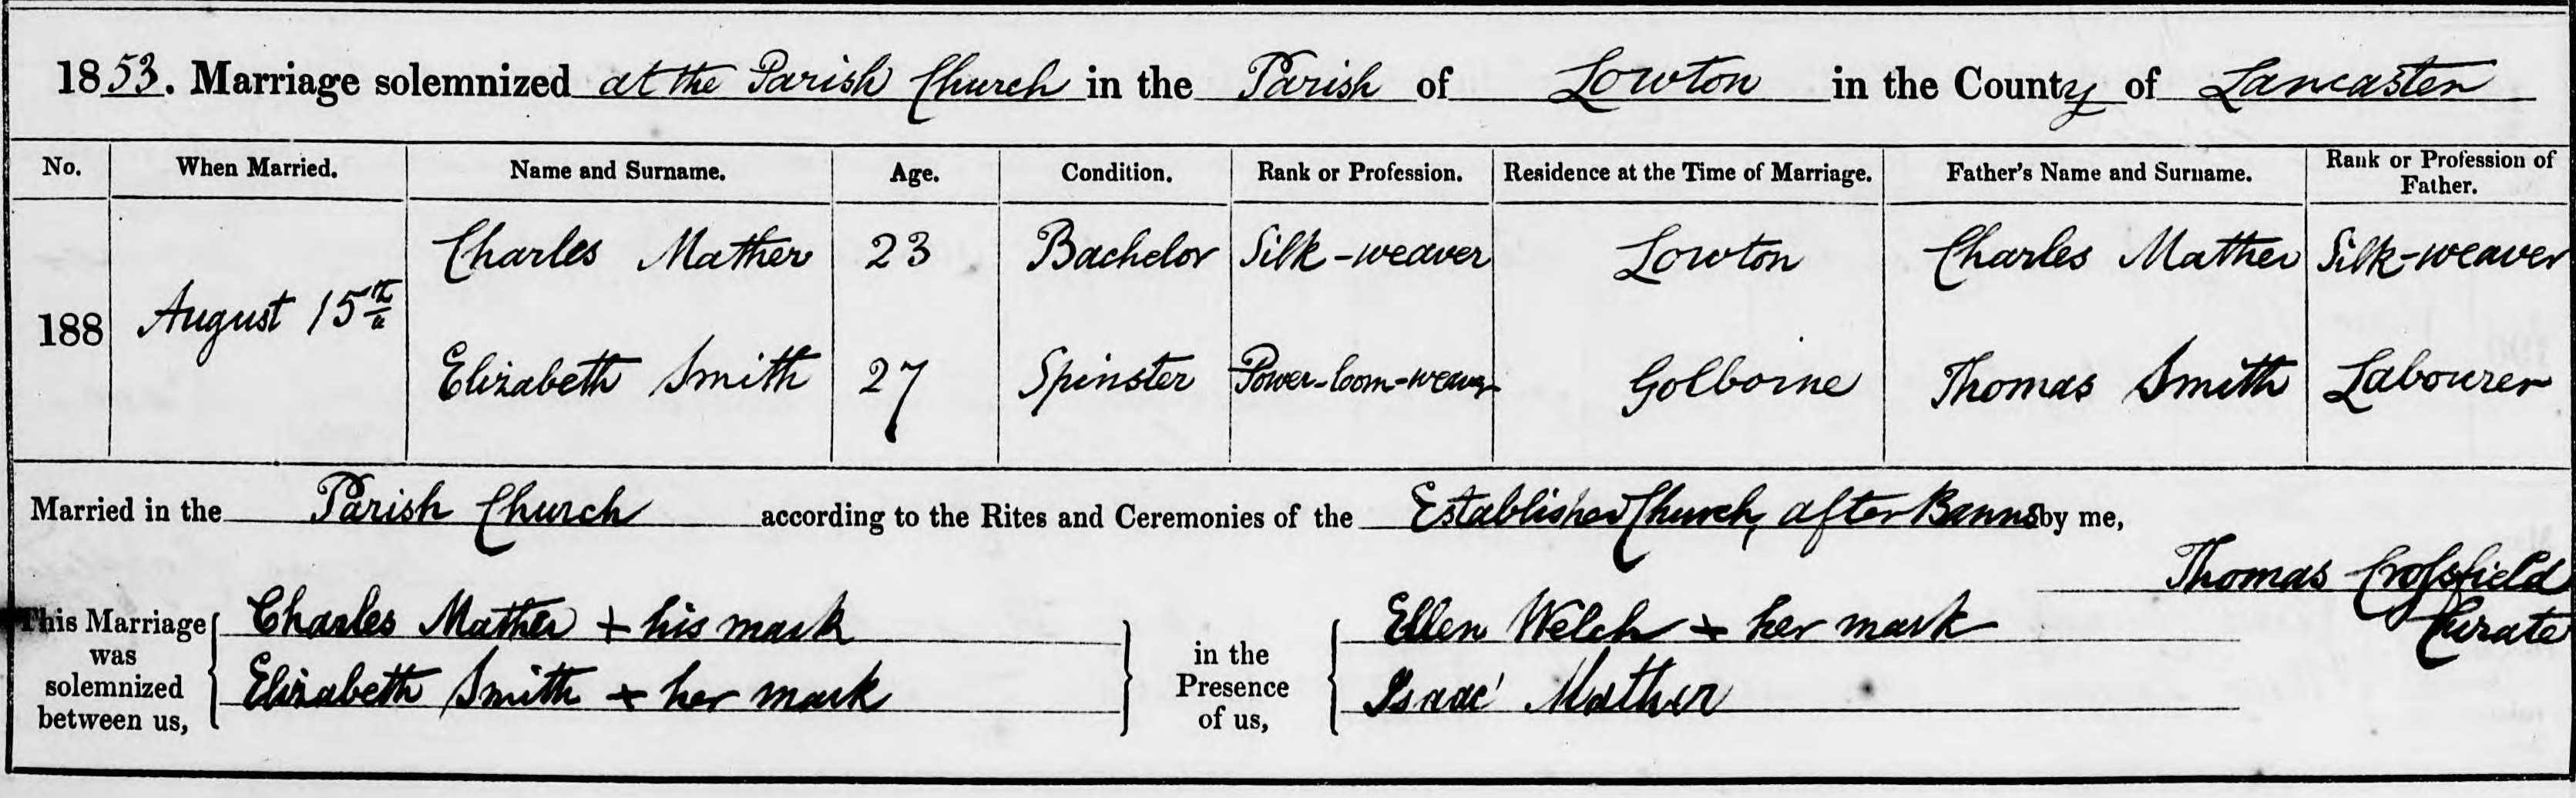 1853. Marriage solemnized at the Parish Church in the Parish of Lowton in the County of Lancaster
No. When Married. Name and Surname. Age. Condition. Rank or Profession. Residence at the Time of Marriage. Father's Name and Surname. Rank or Profession of Father.
188 August 15th
Charles Mather 23 Bachelor Silk-weaver Lowton Charles Mather Silk-weaver
Elizabeth Smith 27 Spinster Power-loom-weaver Golborne Thomas Smith Labourer
Married in the Parish Church according to the Rites and Ceremonies of the Established Church, after Banns by me,
Thomas Crossfield
Curate
This Marriage was solemnized between us,
Charles Mather + his mark
Elizabeth Smith + her mark
in the Presence of us,
Ellen Welch + her mark
Isaac Mather